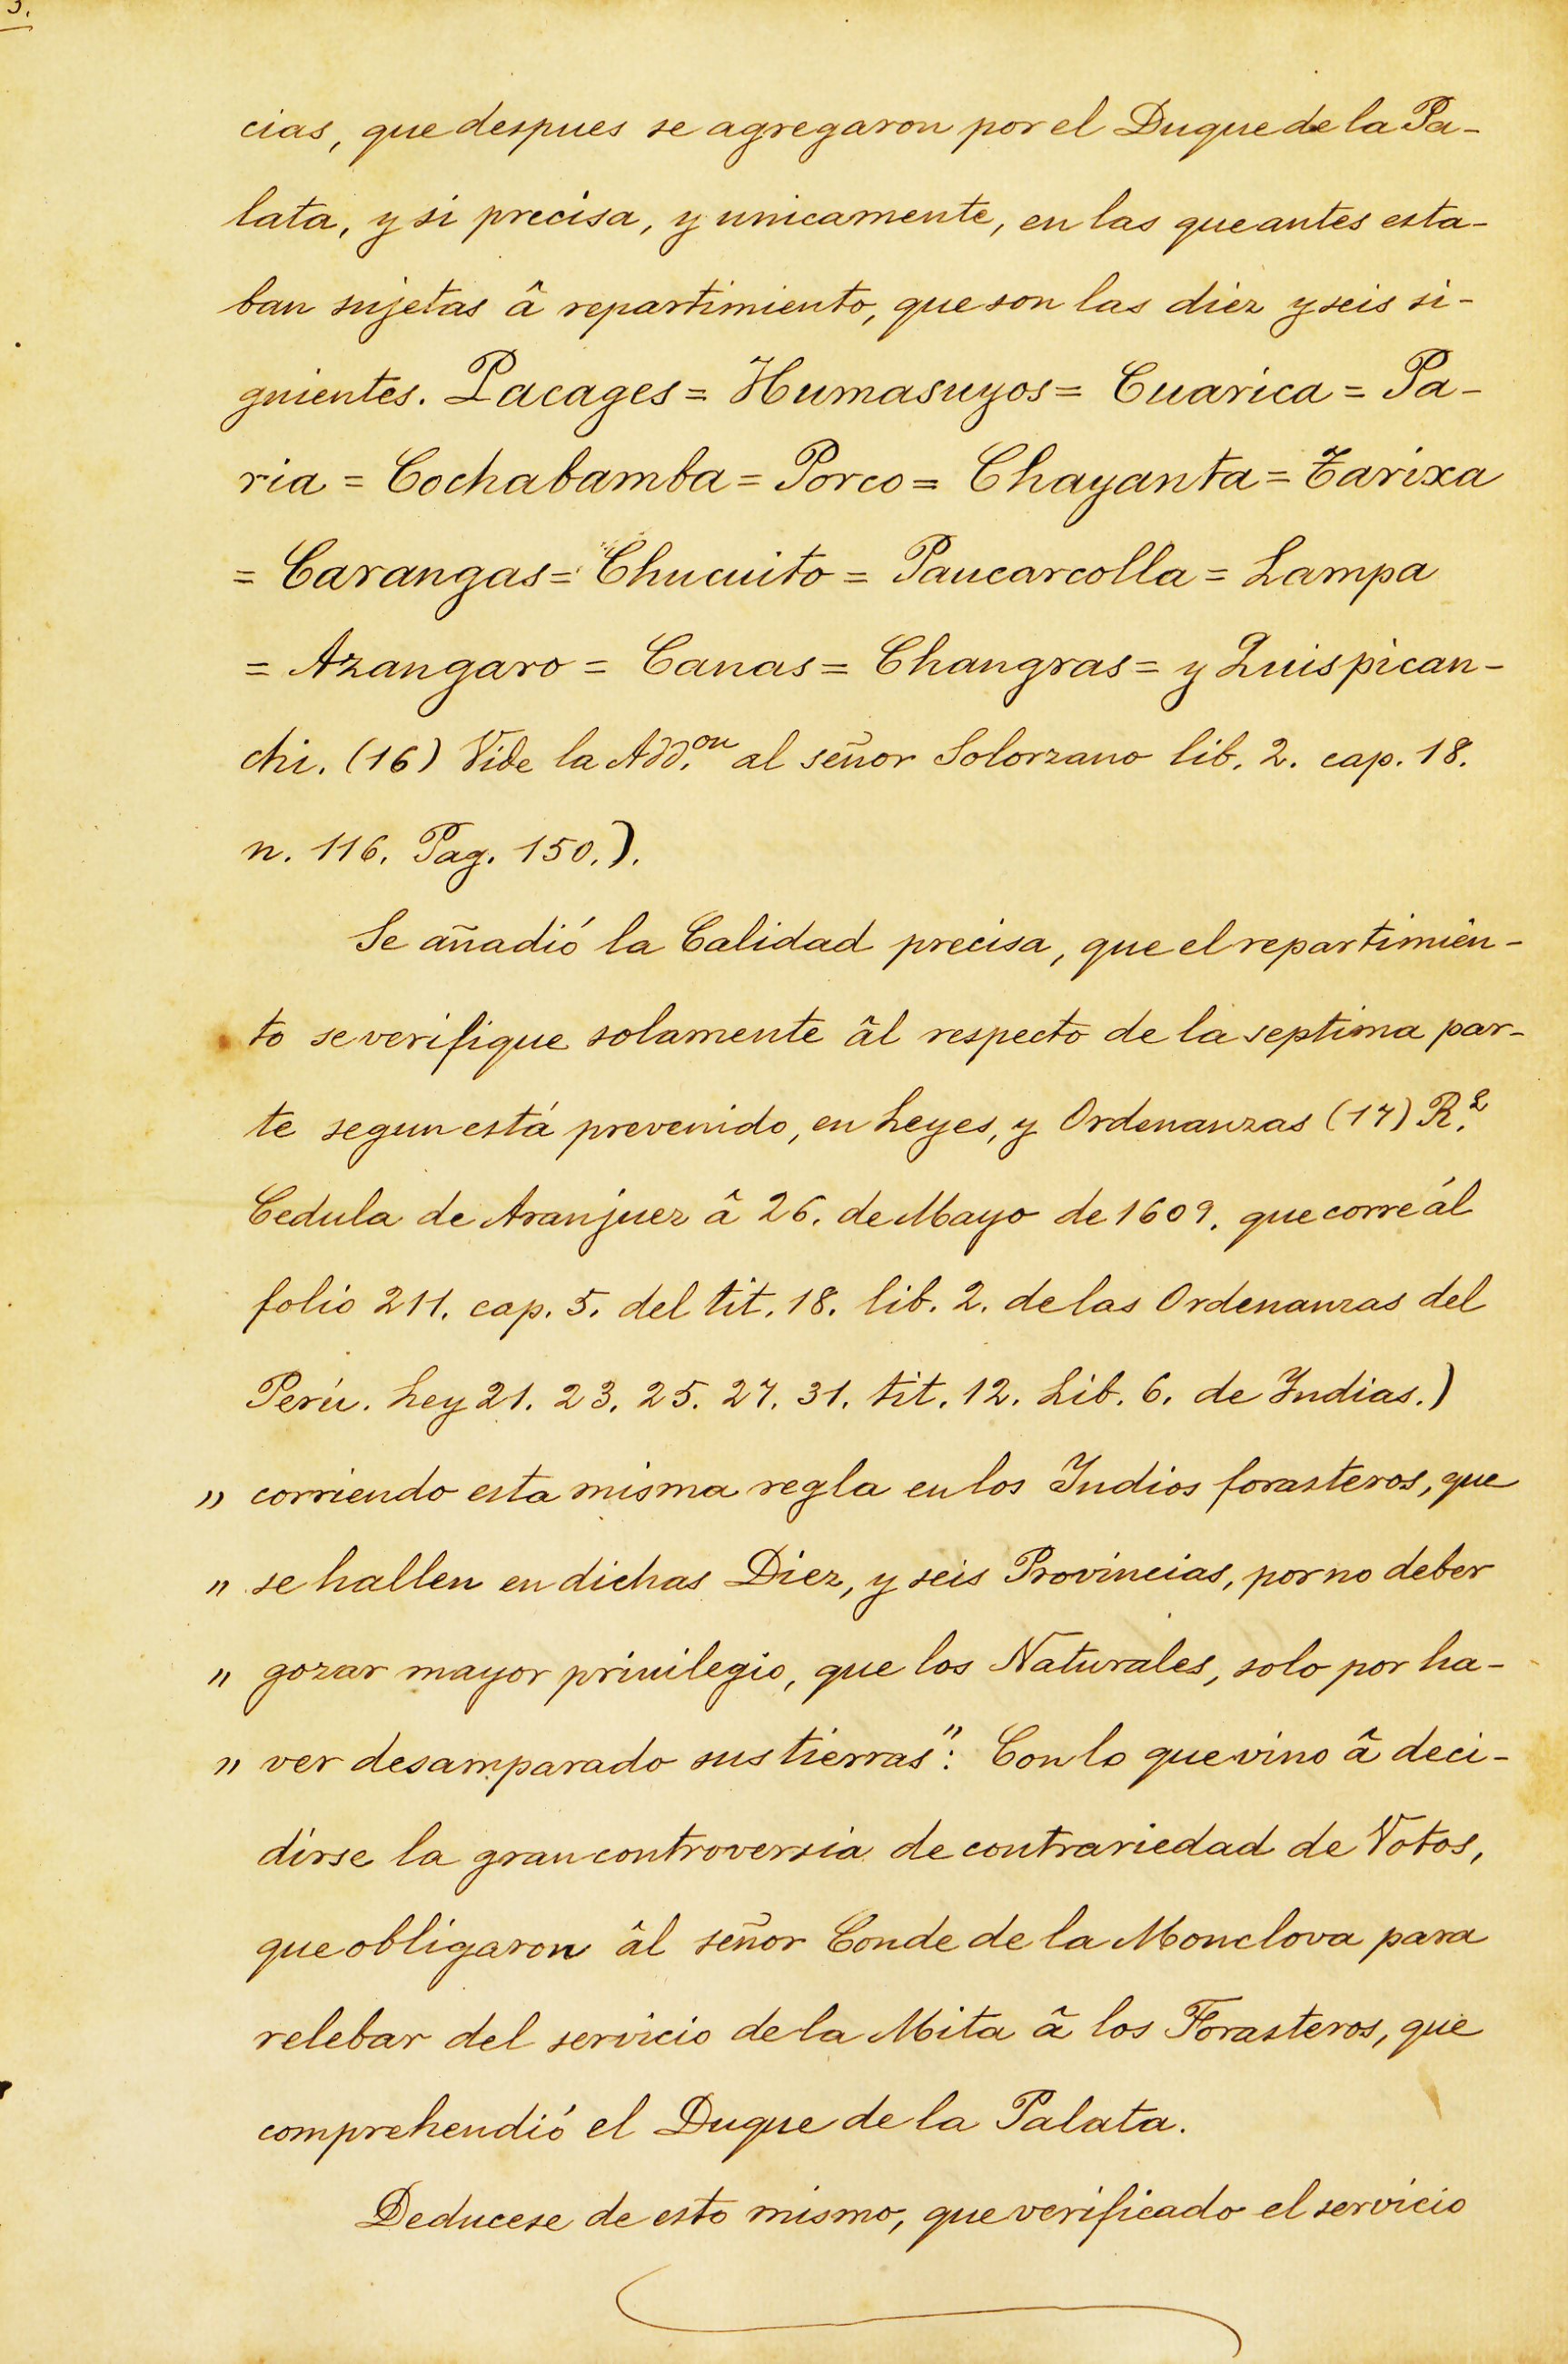 3.
cias, que despues se agregaron por el Duque de la Pa-
lata, y si precisa, y unicamente, en las que antes esta-
ban sujetas â repartimiento, que son las diez y seis si-
guientes. Pacages = Humasuyos = Cuarica = Pa-
ria = Cochabamba = Porco = Chayanta = Tarixa
= Carangas = Chucuito = Paucarcolla = Lampa
= Azangaro = Canas = Changras = y Quispican-
chi. (16) Vide la Add.on al señor Solorzano lib. 2. cap. 18.
n. 116. Pag. 150.).
Se añadió la Calidad precisa, que el repartimien-
to se verifique solamente âl respecto de la septima par-
te segun está prevenido, en Leyes, y Ordenanzas (17) R.l
Cedula de Aranjuez â 26. de Mayo de 1609. que corre ál
folio 211. cap. 5. del tit. 18. lib. 2. de las Ordenanzas del
Perú. Ley 21. 23. 25. 27. 31. tit. 12. Lib. 6. de Indias.)
" corriendo esta misma regla en los Indios forasteros, que
" se hallen en dichas Diez, y seis Provincias, por no deber
" gozar mayor priuilegio, que los Naturales, solo por ha-
" ver desamparado sus tierras": Con lo que vino â deci-
dirse la gran controversia de contrariedad de Votos,
que obligaron âl señor Conde de la Monclova para
relebar del servicio de la Mita â los Forasteros, que
comprehendió el Duque de la Palata.
Deducese de esto mismo, que verificado el servicio